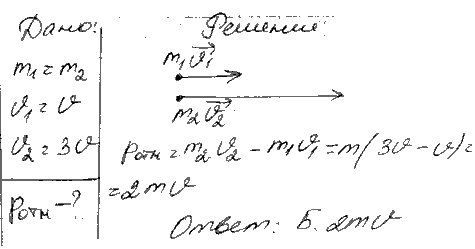 Дано:
m₁ = m₂
υ₁ = υ
υ₂ = 3υ
Pотн - ?
Решение:
m₁υ₁→
m₂υ₂→
Pотн = m₂υ₂ - m₁υ₁ = m(3υ - υ) =
= 2mυ
Ответ: Б. 2mυ